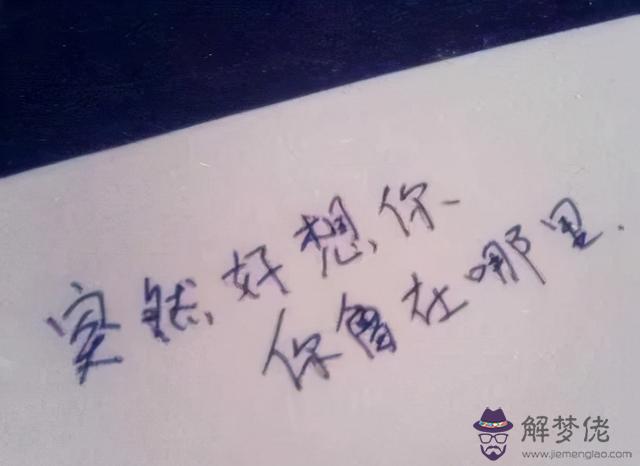 突然好想你
你會在哪里.
解梦佬
www.jiemenglao.com